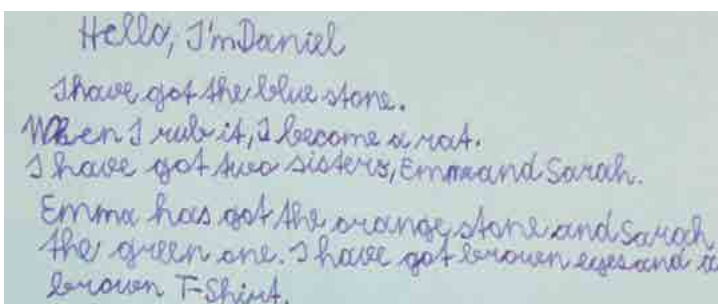 Hello, I'm Daniel
I have got the blue stone.
When I rub it, I become a rat.
I have got two sisters, Emma and Sarah.
Emma has got the orange stone and Sarah
the green one. I have got brown eyes and a
brown T-Shirt.